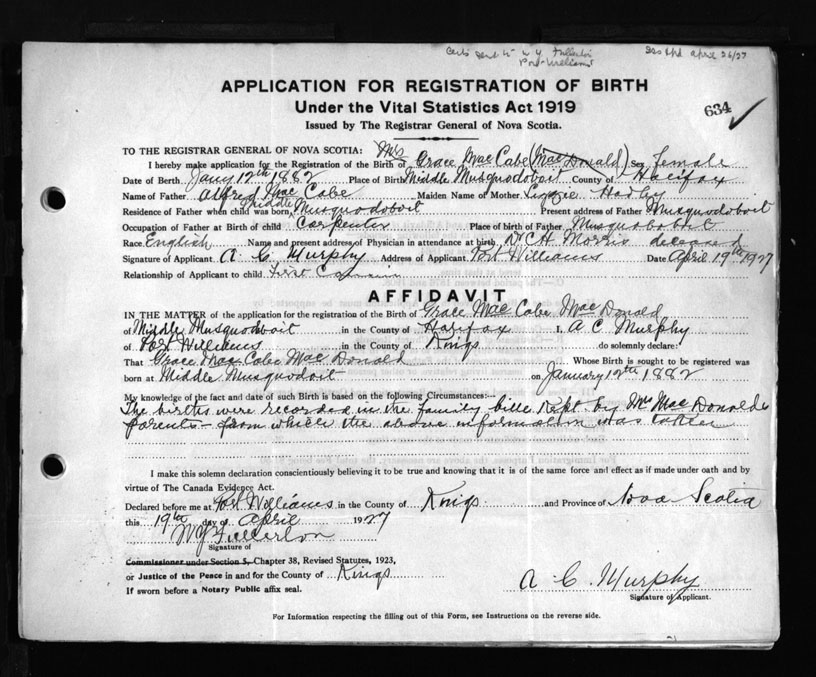 Port Williams
APPLICATION FOR REGISTRATION OF BIRTH
Under the Vital Statistics Act 1919
634
Issued by The Registrar General of Nova Scotia.
TO THE REGISTRAR GENERAL OF NOVA SCOTIA:
I hereby make application for the Registration of the Birth of Mrs Grace MacCabe (MacDonald) Sex Female
Date of Birth Jany 12th 1882 Place of Birth Middle Musquodoboit County of Halifax
Name of Father Alfred MacCabe Maiden Name of Mother Lizzie
Residence of Father when child was born Middle Musquodoboit Present address of Father Musquodoboit
Occupation of Father at Birth of child Carpenter Place of Birth of Father Musquodoboit
Race English Name and present address of Physician in attendance at birth Dr C H Morris deceased
Signature of Applicant A. C. Murphy Address of Applicant Port Williams Date April 19th 1927
Relationship of Applicant to child First Cousin
AFFIDAVIT
IN THE MATTER of the application for the registration of the Birth of Grace MacCabe MacDonald
of Middle Musquodoboit in the County of Halifax I, A. C. Murphy
of Port Williams in the County of Kings do solemnly declare:
That Grace MacCabe MacDonald Whose Birth is sought to be registered was
born at Middle Musquodoit on January 12th 1882
My knowledge of the fact and date of such Birth is based on the following Circumstances:—
The births were recorded in the family bible kept by Mrs MacDonalds
parents - from which the above information was taken
I make this solemn declaration conscientiously believing it to be true and knowing that it is of the same force and effect as if made under oath and by
virtue of The Canada Evidence Act.
Declared before me at Port Williams in the County of Kings and Province of Nova Scotia
this 19th day of April 1927
W Y Fullerton
Signature of
Commissioner under Section 5, Chapter 38, Revised Statutes, 1923,
or Justice of the Peace in and for the County of Kings
A. C. Murphy
If sworn before a Notary Public affix seal.
Signature of Applicant.
For Information respecting the filling out of this Form, see Instructions on the reverse side.